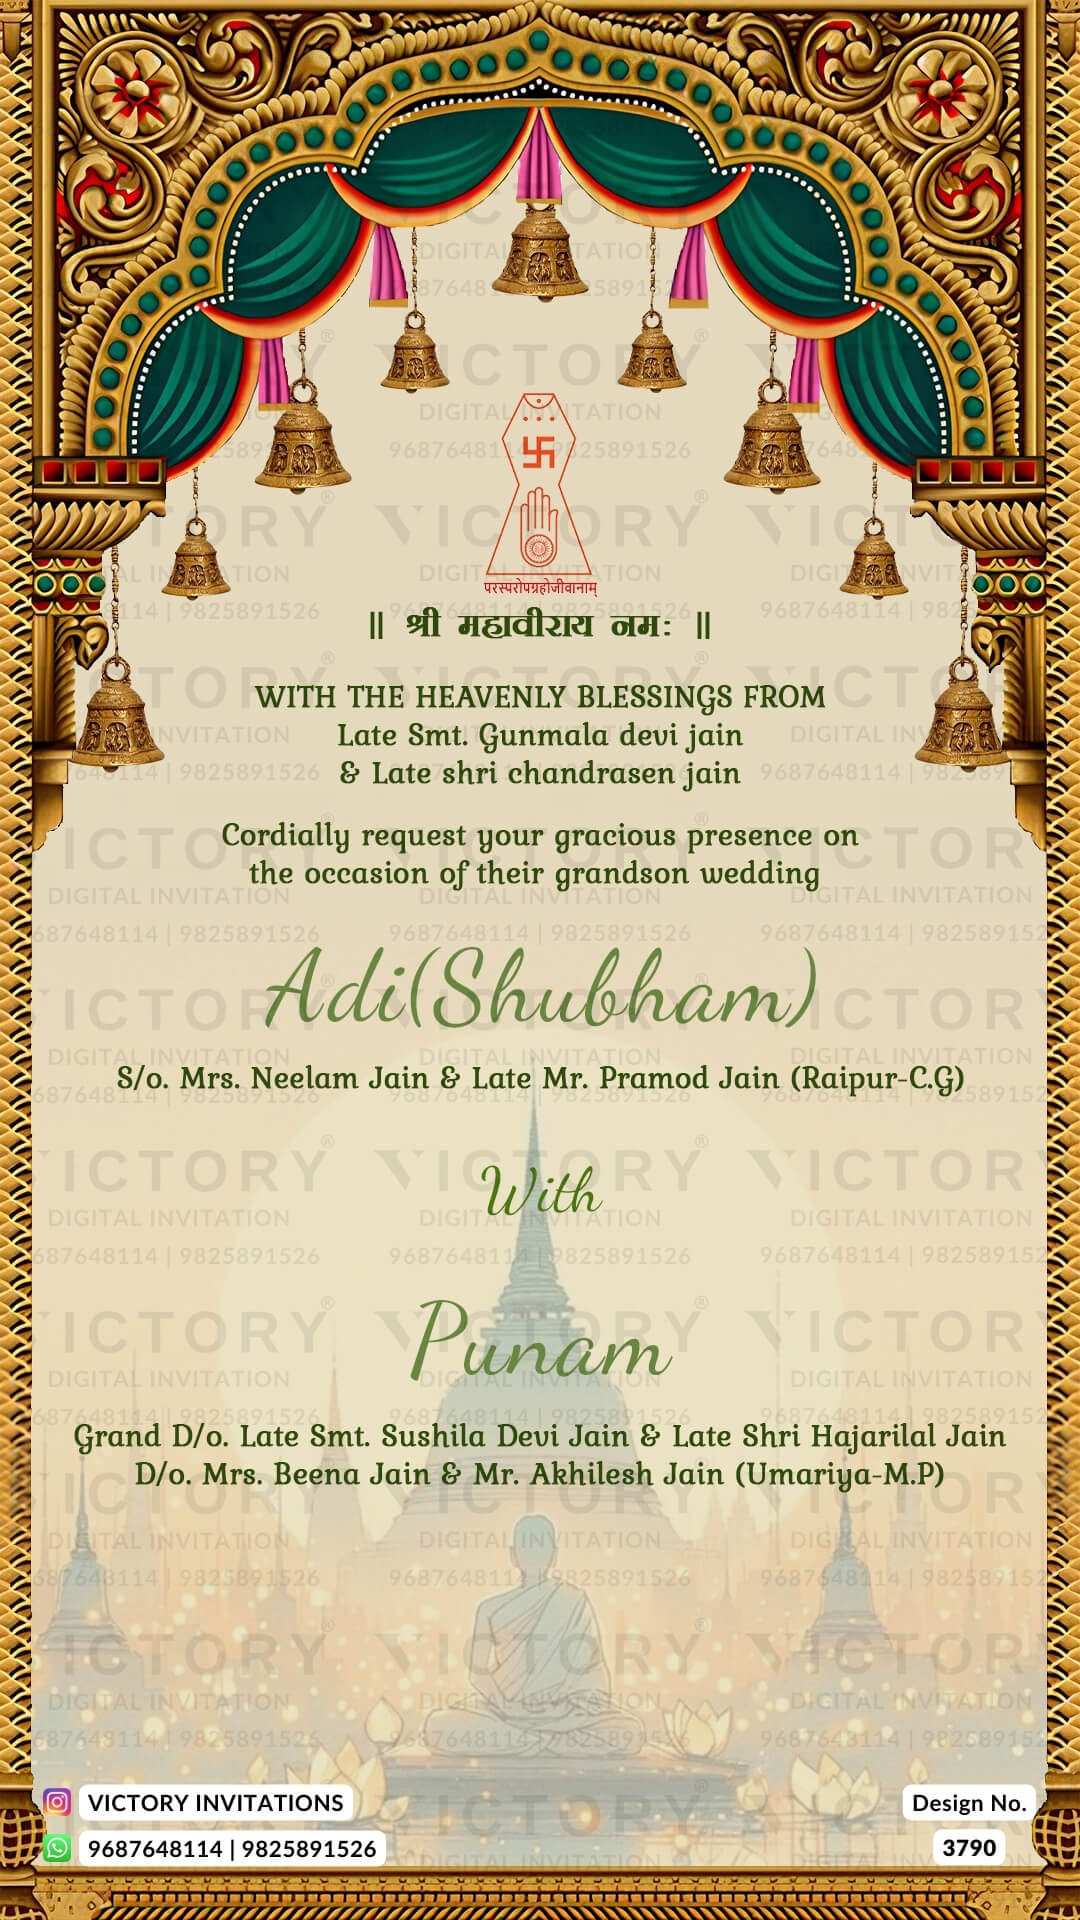 परस्परोपग्रहोजीवानाम्
|| श्री महावीराय नमः ||
WITH THE HEAVENLY BLESSINGS FROM
Late Smt. Gunmala devi jain
& Late shri chandrasen jain
Cordially request your gracious presence on
the occasion of their grandson wedding
Adi(Shubham)
S/o. Mrs. Neelam Jain & Late Mr. Pramod Jain (Raipur-C.G)
With
Punam
Grand D/o. Late Smt. Sushila Devi Jain & Late Shri Hajarilal Jain
D/o. Mrs. Beena Jain & Mr. Akhilesh Jain (Umariya-M.P)
VICTORY INVITATIONS
9687648114 | 9825891526
Design No.
3790
VICTORY®
DIGITAL INVITATION
9687648114 | 9825891526